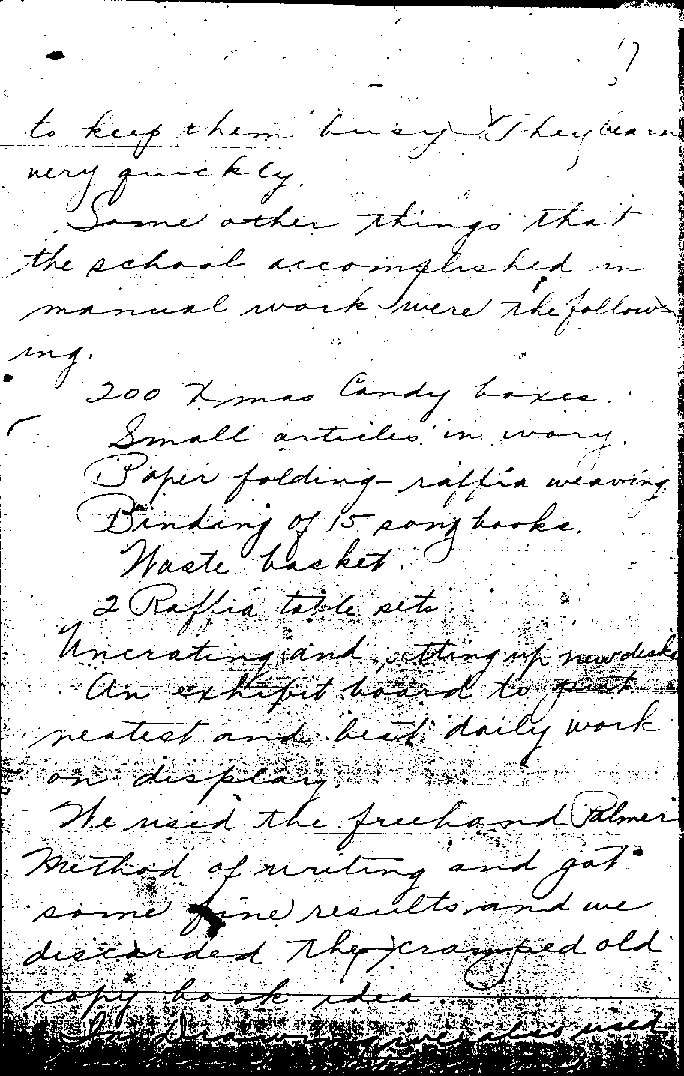 to keep them busy. They learn
very quickly.
Some other things that
the school accomplished in
manual work were the follow-
ing.
200 Xmas Candy boxes.
Small articles in ivory.
Paper folding - raffia weaving
Binding of 15 song books.
Waste basket.
2 Raffia table sets
Uncrating and setting up new desks
An exhibit board to put
neatest and best daily work
on display.
We used the freehand Palmer
Method of writing and got
some fine results and we
discarded the cramped old
copy book idea.
In Drawing we also used